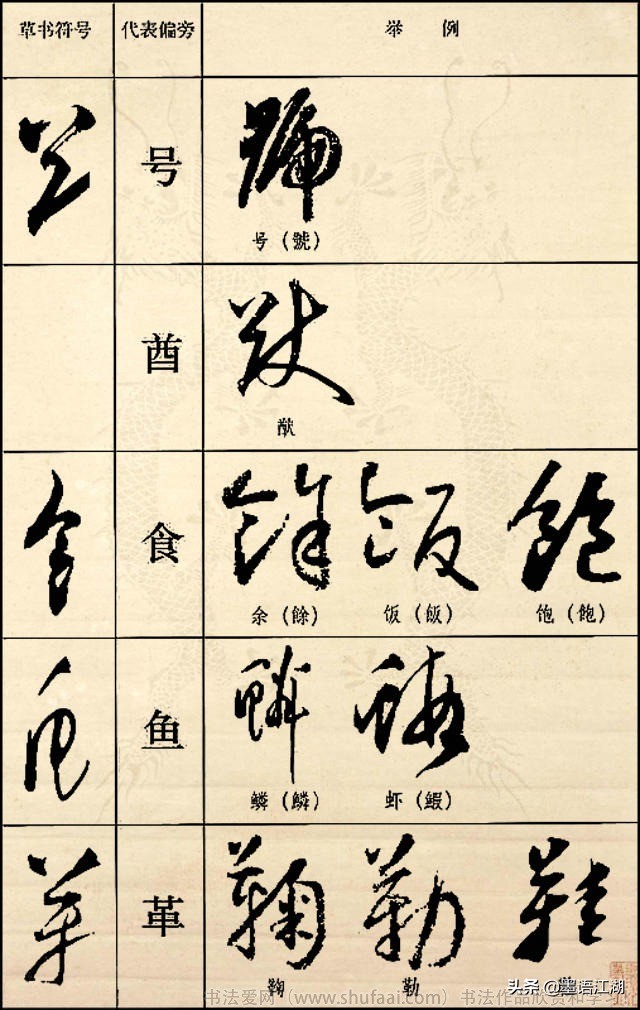 草书符号 代表偏旁 举 例
号
号（號）
酋
猷
食
余（餘） 饭（飯） 饱（飽）
鱼
鳞（鱗） 虾（鰕）
革
鞠 勒
书法爱网（www.shufaai.com）书法作品欣赏和学习
头条 @墨语江湖